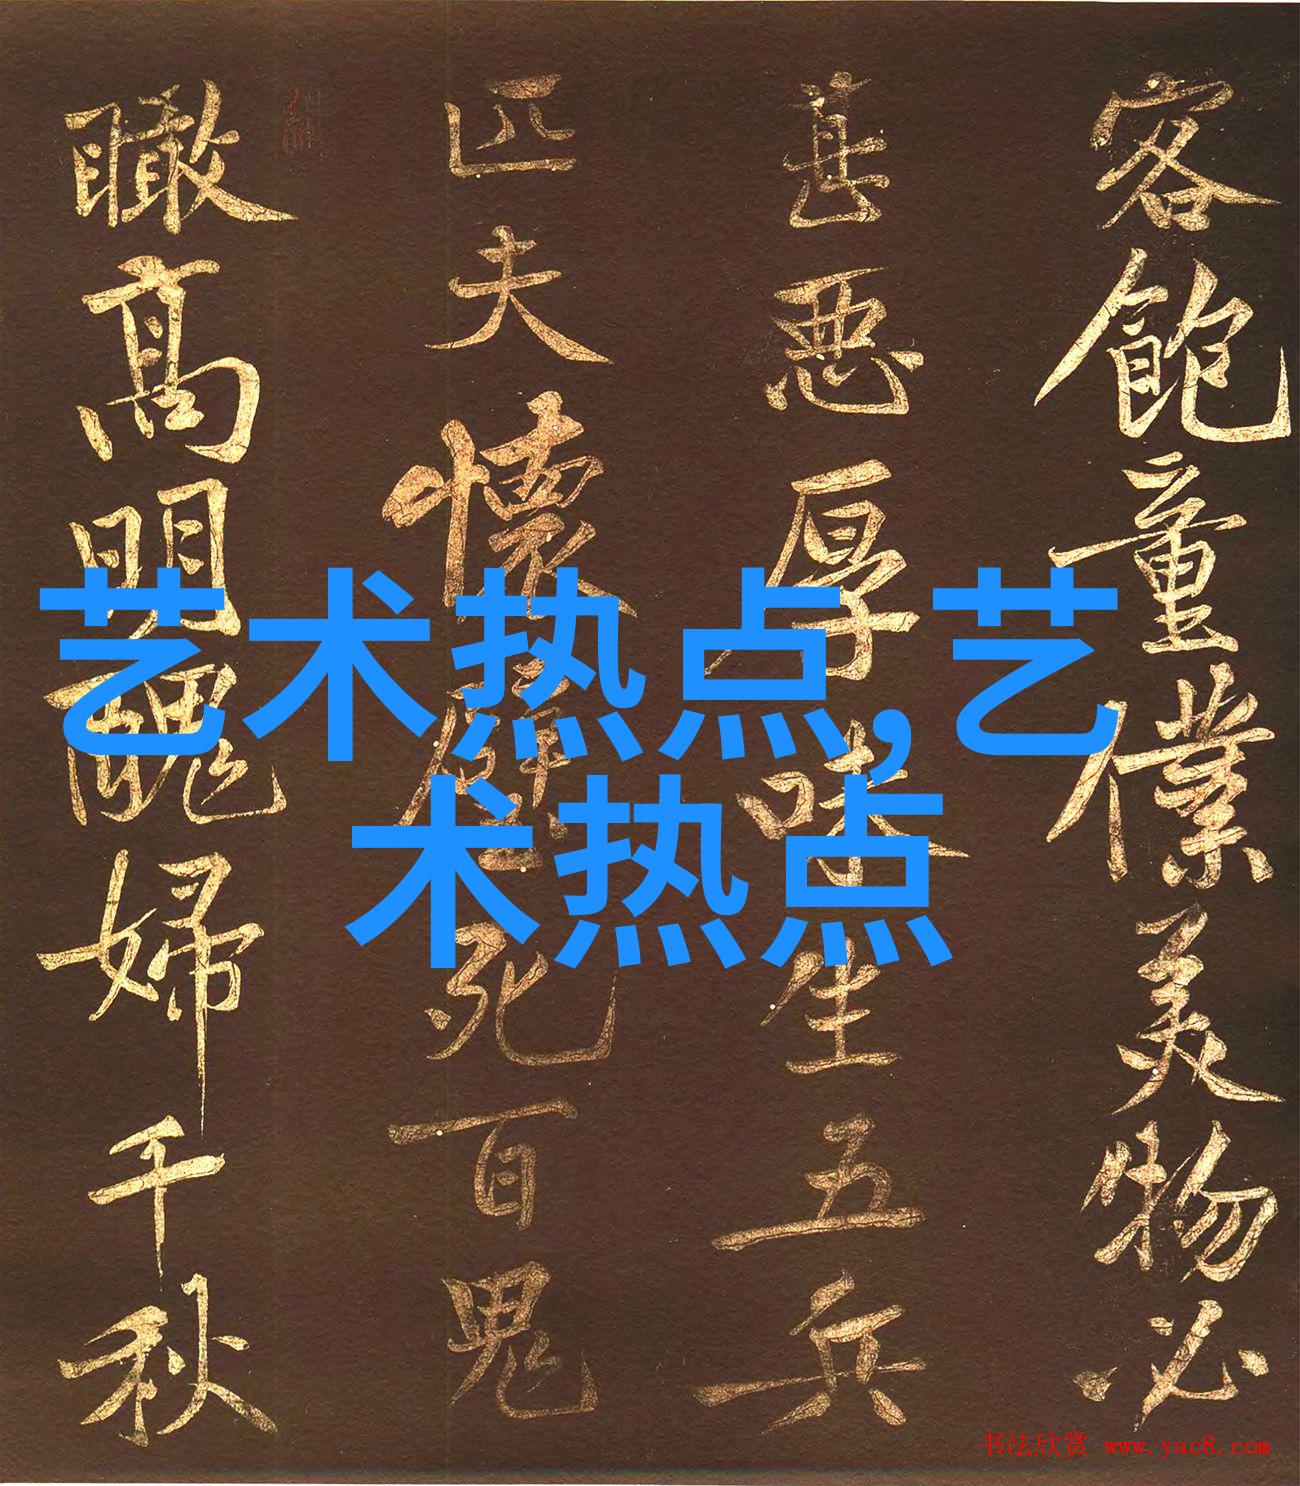 客飽童僕美物必
甚惡厚味生五兵
匹夫懷璧死百鬼
瞰高明醜婦千秋
艺术热点,艺
术热点
书法欣赏 www.yac8.com